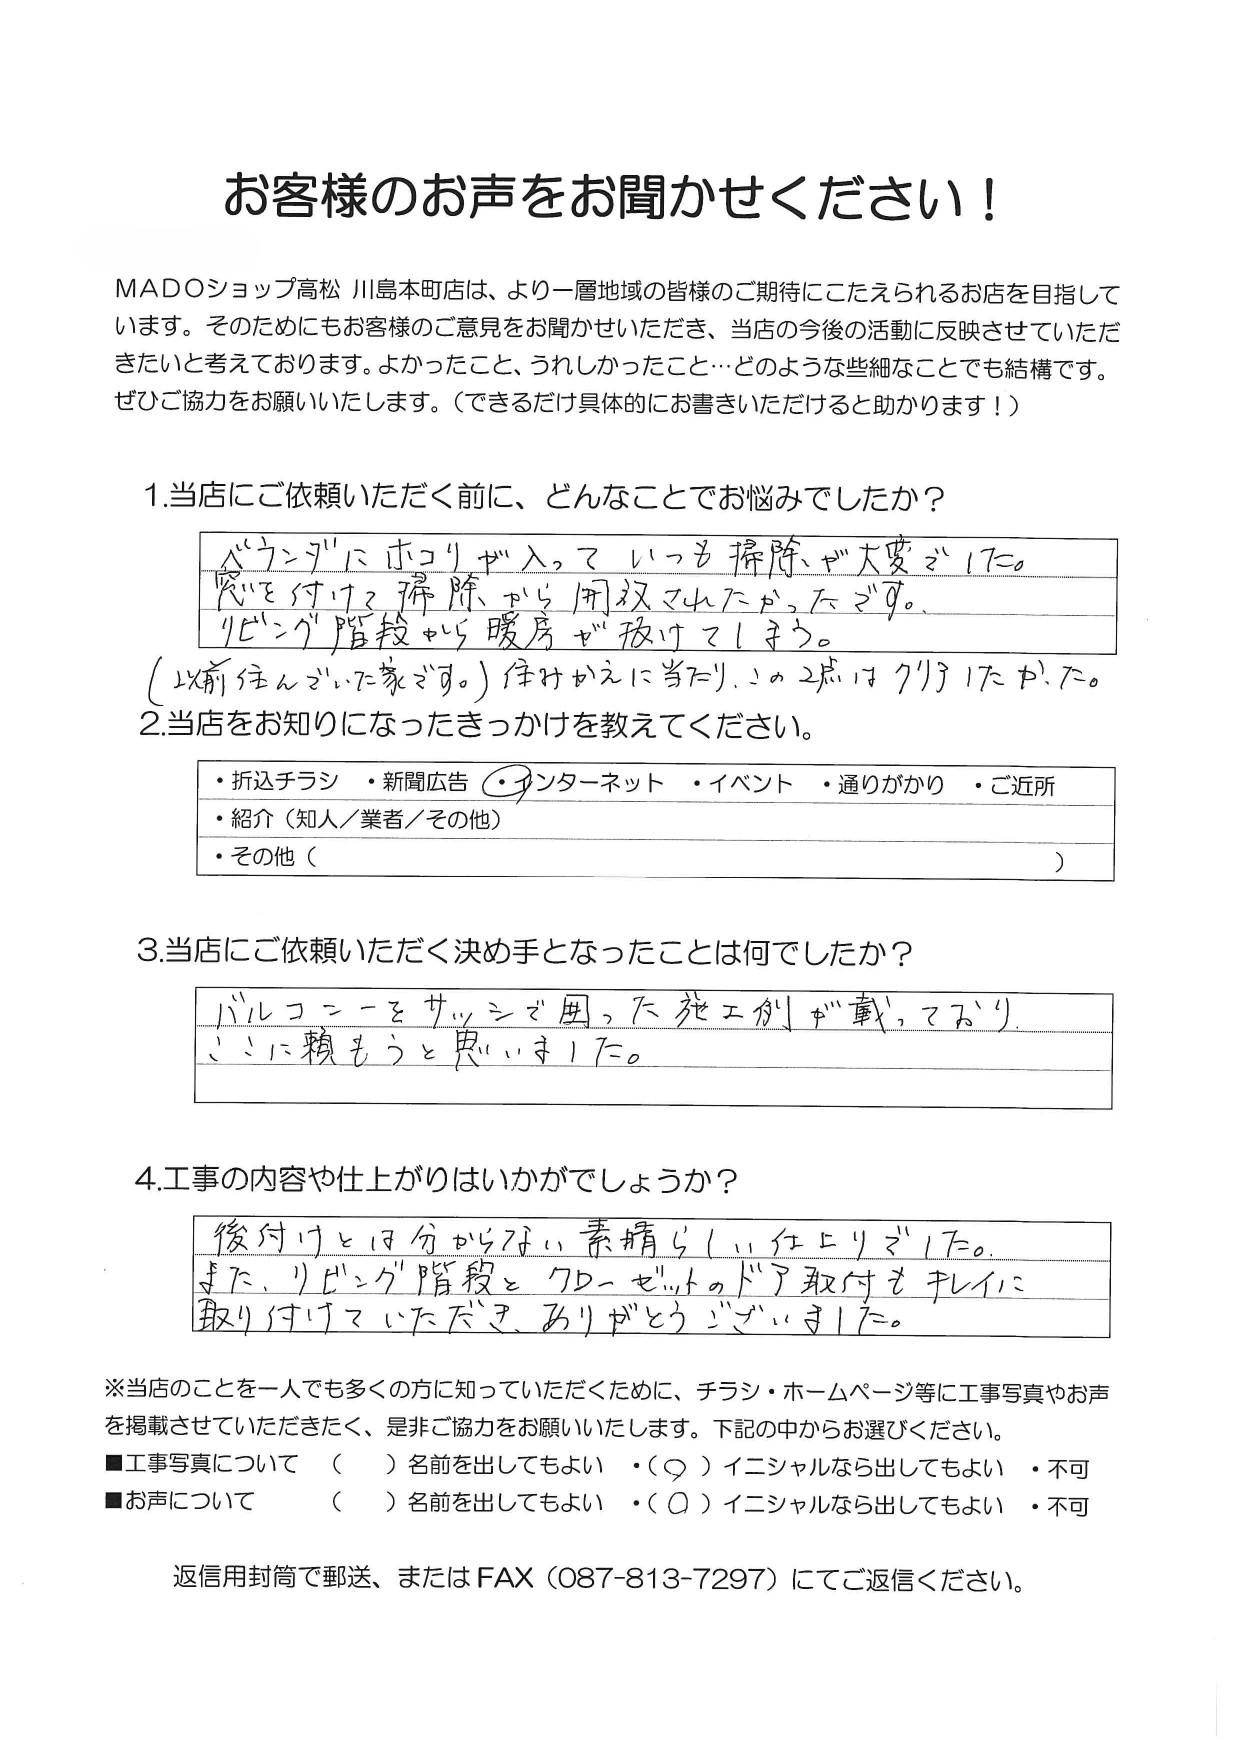 お客様のお声をお聞かせください！
MADOショップ高松 川島本町店は、より一層地域の皆様のご期待にこたえられるお店を目指して
います。そのためにもお客様のご意見をお聞かせいただき、当店の今後の活動に反映させていただ
きたいと考えております。よかったこと、うれしかったこと…どのような些細なことでも結構です。
ぜひご協力をお願いいたします。（できるだけ具体的にお書きいただけると助かります！）
1.当店にご依頼いただく前に、どんなことでお悩みでしたか？
ベランダにホコリが入っていつも掃除が大変でした。
窓を付けて掃除から開放されたかったです。
リビング階段から暖房が抜けてしまう。
（以前住んでいた家です。）住みかえに当たり、この2点はクリアしたかった。
2.当店をお知りになったきっかけを教えてください。
・折込チラシ ・新聞広告 ・インターネット ・イベント ・通りがかり ・ご近所
・紹介（知人／業者／その他）
・その他（ ）
3.当店にご依頼いただく決め手となったことは何でしたか？
バルコニーをサッシで囲った施工例が載っており、
ここに頼もうと思いました。
4.工事の内容や仕上がりはいかがでしょうか？
後付けとは分からない素晴らしい仕上りでした。
また、リビング階段とクローゼットのドア取付もキレイに
取り付けていただき、ありがとうございました。
※当店のことを一人でも多くの方に知っていただくために、チラシ・ホームページ等に工事写真やお声
を掲載させていただきたく、是非ご協力をお願いいたします。下記の中からお選びください。
■工事写真について （ ）名前を出してもよい ・（○）イニシャルなら出してもよい ・不可
■お声について （ ）名前を出してもよい ・（○）イニシャルなら出してもよい ・不可
返信用封筒で郵送、またはFAX（087-813-7297）にてご返信ください。